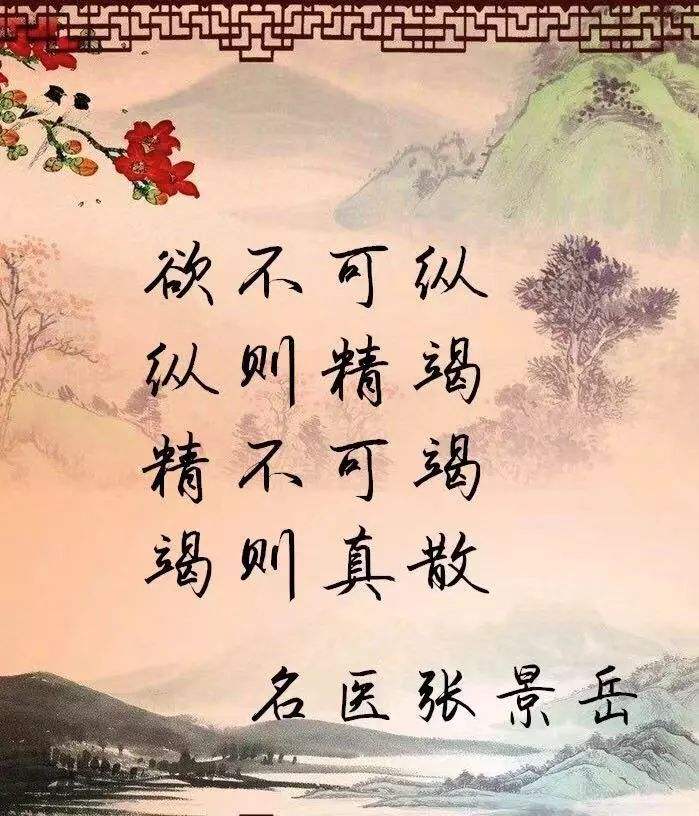 欲不可纵
纵则精竭
精不可竭
竭则真散
名医张景岳